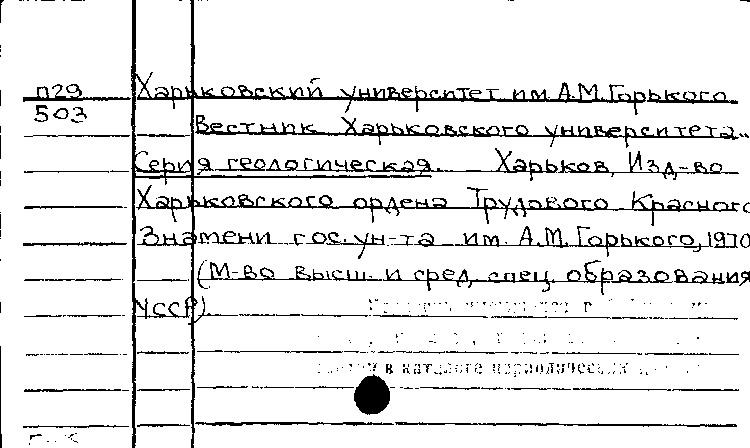 п29 Харьковский университет им. А.М. Горького.
503
Вестник Харьковского университета..
Серия геологическая. Харьков, Изд-во
Харьковского ордена Трудового Красного
Знамени гос. ун-та им. А.М. Горького, 1970
(М-во высш. и сред. спец. образования
УССР).
в каталоге периодических